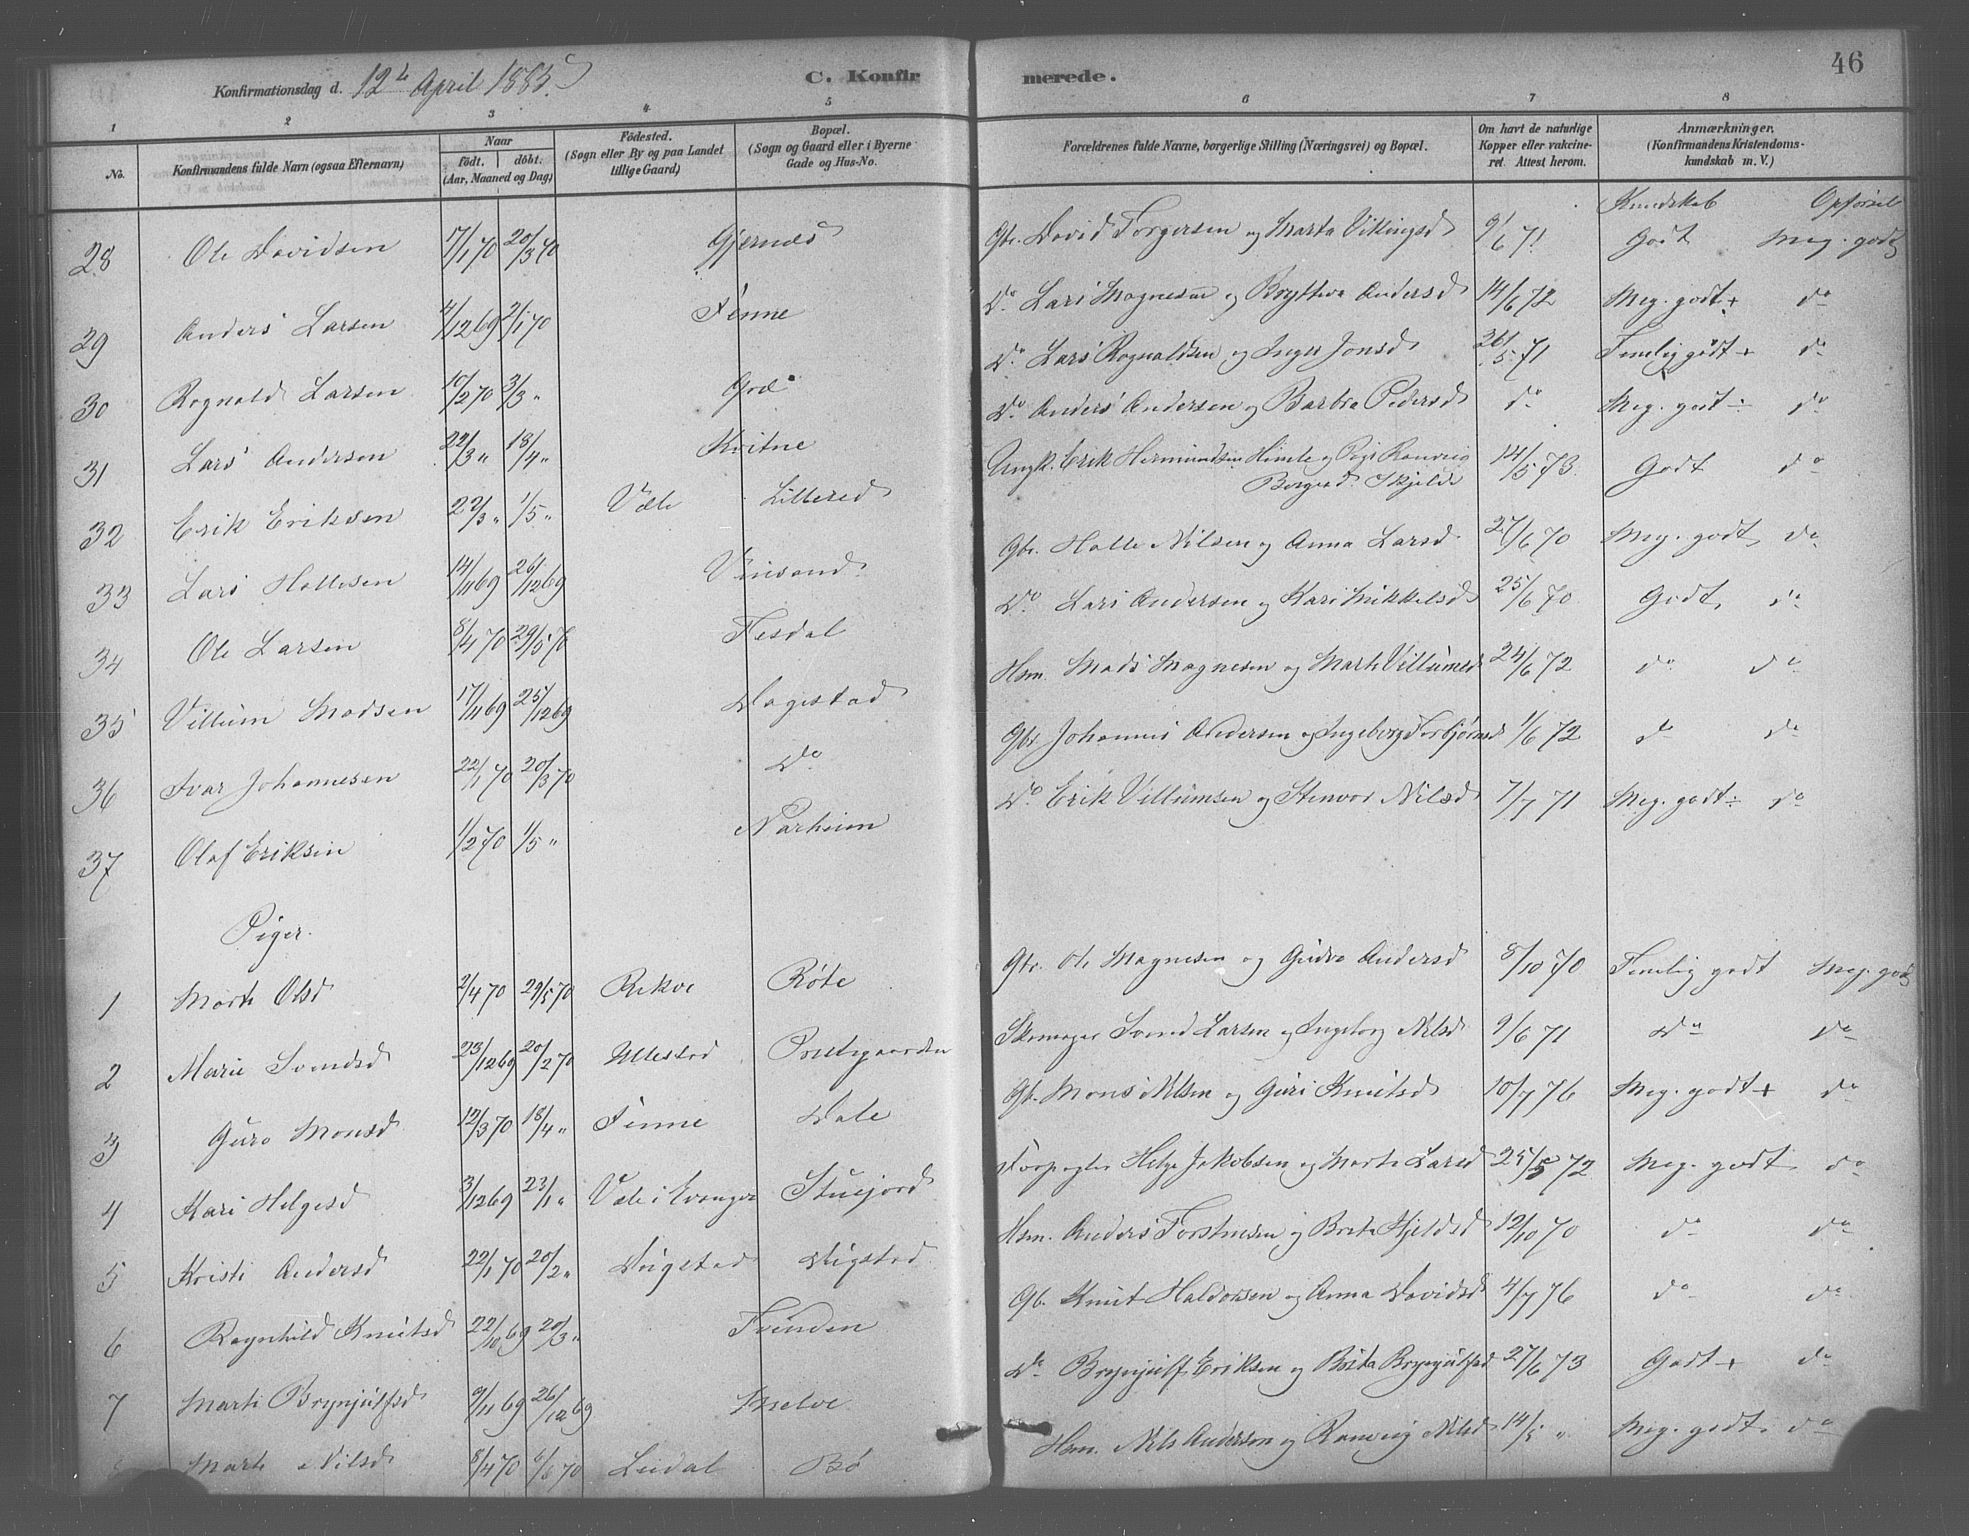 46
Konfirmationsdag d. 12te April 1885.
C. Konfirmerede.
1 2 3 4 5 6 7 8
No.
Konfirmandens fulde Navn (ogsaa Efternavn)
Naar
födt. döbt.
(Aar, Maaned og Dag)
Födested.
(Sogn eller By og paa Landet
tillige Gaard)
Bopæl.
(Sogn og Gaard eller i Byerne
Gade og Hus-No.
Forældrenes fulde Navne, borgerlige Stilling (Næringsvei) og Bopæl.
Om havt de naturlige
Kopper eller vakcineret.
Attest herom.
Anmærkninger.
(Konfirmandens Kristendomskundskab
m. V.)
Kundskab Opførsel
28 Ole Davidsen 17/1 70 20/3 70 Gjernes Gbr. David Torgersen og Marta Vikingsd 9/6 71 Godt Meg. godt
29 Anders Larsen 4/12 69 2/1 70 Finne Do Lars Magnesen og Brytteva Andersd 14/6 72 Meg. godt + do
30 Rognald Larsen 10/2 70 3/3 " Gred Do Lars Rognaldsen og Inger Jonsd 26/5 71 Temlig godt + do
31 Lars Andersen 22/3 " 18/4 " Kvitne Do Anders Andersen og Barbra Pedersd do Meg. godt ÷ do
32 Erik Eriksen 22/3 " 1/5 " Væle Lillered Ungk. Erik Hermundsen Himle og Pige Ranveig Borgesd Skjelde 14/5 73 Godt do
33 Lars Hallesen 14/11 69 26/12 69 Vinsand Gbr. Halle Nilsen og Anna Larsd 27/6 70 Meg. godt do
34 Ole Larsen 8/4 70 29/5 70 Tesdal Do Lars Andersen og Kari Mikkelsd 25/6 70 Godt do
35 Villum Madsen 17/11 69 25/12 69 Dagestad Hsm. Mads Magnesen og Marta Villumsd 24/6 72 do do
36 Ivar Johannesen 22/1 70 20/3 70 Do Gbr. Johannes Andersen og Ingeborg Torbjørnsd 1/6 72 do do
37 Olaf Eriksen 1/2 70 1/5 " Narheim Do Erik Villumsen og Stenvor Nilsd 7/7 71 Meg. godt ÷ do
Piger.
1 Marta Olsd 2/4 70 29/5 70 Rekve Røte Gbr. Ole Magnesen og Gudve Andersd 8/10 70 Temlig godt Meg. godt
2 Marie Svendsd 23/12 69 20/2 70 Ullestad Prestegaarden Skomager Svend Larsen og Ingeborg Nilsd 9/6 71 Do do
3 Guro Monsd 12/3 70 18/4 " Finne Dale Gb. Mons Nilsen og Guri Knutsd 10/7 76 Meg. godt + do
4 Kari Helgesd 3/12 69 23/1 " Væle i Evanger Stuejord Forpagter Helge Jakobsen og Marta Larsd 25/5 72 Meg. godt do
5 Kristi Andersd 22/1 70 20/2 " Dugstad Dugstad Hsm. Anders Torstensen og Brita Kjeldsd 12/10 70 do do
6 Ragnhild Knutsd 22/10 69 20/3 " Tvinden Gb. Knut Haldorsen og Anna Davidsd 4/7 76 do do
7 Marta Brynjulfsd 9/11 69 26/12 69 Mælve Do Brynjulf Eriksen og Brita Brynjulfsd 27/6 73 Godt + do
Marta Nilsd 8/4 70 6/6 70 Lædal Bø Hsm. Nils Anderson og Ranveig Nilsd 14/5 " Meg. godt do